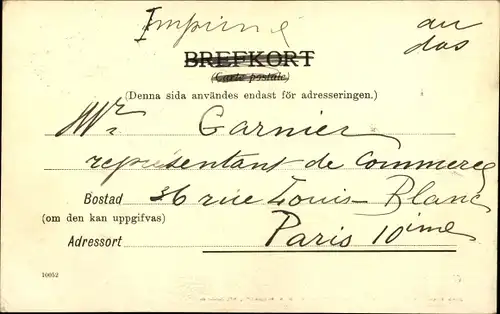 Imprimé au
dos
BREFKORT
(Carte postale)
(Denna sida användes endast för adresseringen.)
Mr Garnier
représentant de Commerce
Bostad 36 rue Louis-Blanc
(om den kan uppgifvas)
Adressort Paris 10ième
10052